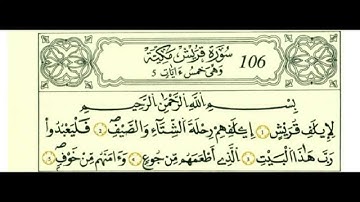 سُورَةُ قُرَيْشٍ مَكِّيَّة 106
وَهْيَ خَمْسُ ءَايَاتٍ 5
بِسْمِ اللَّهِ الرَّحْمَٰنِ الرَّحِيمِ
لِإِيلَٰفِ قُرَيْشٍ ١ إِۦلَٰفِهِمْ رِحْلَةَ الشِّتَآءِ وَالصَّيْفِ ٢ فَلْيَعْبُدُوا۟
رَبَّ هَٰذَا الْبَيْتِ ٣ الَّذِي أَطْعَمَهُم مِّن جُوعٍ ٤ وَءَامَنَهُم مِّنْ خَوْفٍ ٥